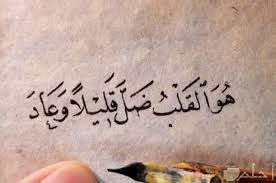 هُوَ الْقَلْبُ ضَلَّ قَلِيْلاً وَعَادَ
احلم